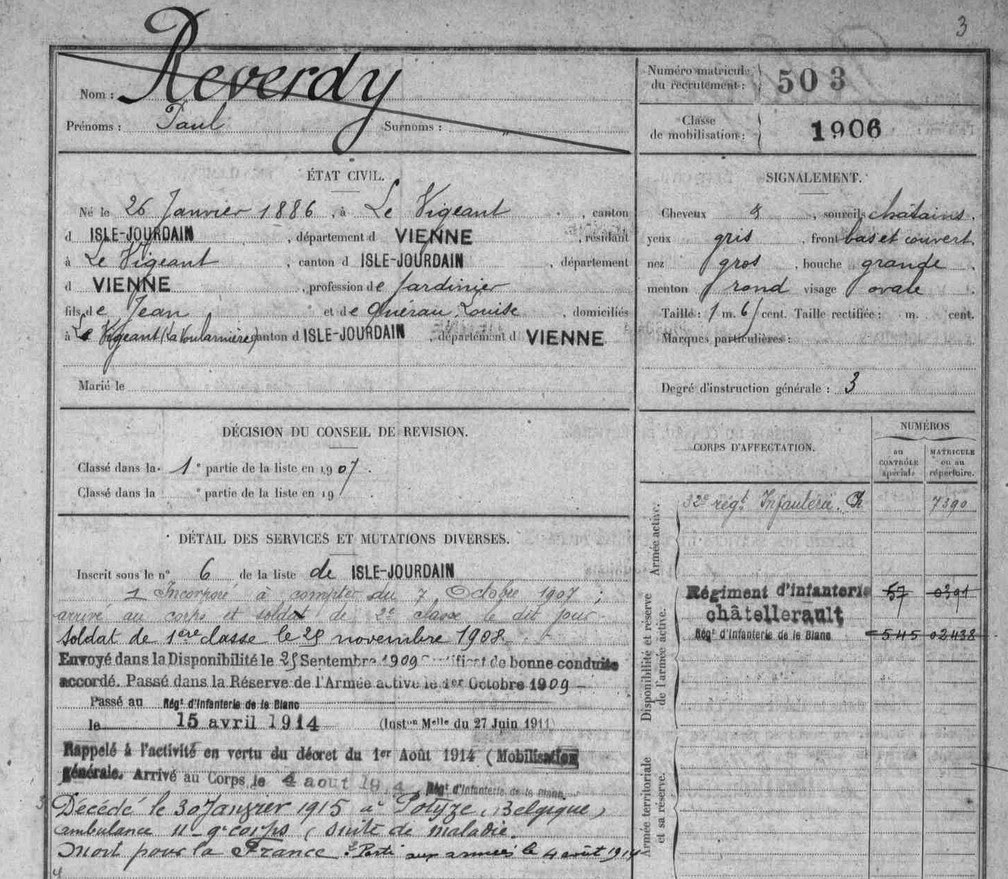 3
Nom : Reverdy
Prénoms : Paul Surnoms :
Numéro matricule du recrutement : 503
Classe de mobilisation : 1906
ÉTAT CIVIL.
Né le 26 Janvier 1886, à Le Vigeant, canton
d ISLE-JOURDAIN, département d VIENNE, résidant
à Le Vigeant, canton d ISLE-JOURDAIN, département
d VIENNE, profession de Jardinier
fils de Jean et de Guérau Louise, domiciliés
à Le Vigeant canton d ISLE-JOURDAIN, département d VIENNE
Marié le
SIGNALEMENT.
Cheveux & sourcils chatains.
yeux gris, front bas et couvert.
nez gros, bouche grande
menton rond visage ovale
Taille : 1 m. 61 cent. Taille rectifiée : m. cent.
Marques particulières :
Degré d'instruction générale : 3
DÉCISION DU CONSEIL DE REVISION.
Classé dans la 1e partie de la liste en 1907.
Classé dans la e partie de la liste en 19
DÉTAIL DES SERVICES ET MUTATIONS DIVERSES.
Inscrit sous le n° 6 de la liste de ISLE-JOURDAIN
Incorporé à compter du 7 Octobre 1907 ;
arrivé au corps et soldat de 2e classe le dit jour.
Soldat de 1ère classe le 25 novembre 1908
Envoyé dans la Disponibilité le 25 Septembre 1909 Certificat de bonne conduite
accordé. Passé dans la Réserve de l'Armée active le 1er Octobre 1909
Passé au Régt d'Infanterie de le Blanc
le 15 avril 1914 (Inston Melle du 27 Juin 1911)
Rappelé à l'activité en vertu du décret du 1er Août 1914 (Mobilisation
générale. Arrivé au Corps le 4 aout 1914 Régt d'Infanterie de le Blanc
Décédé le 30 Janvier 1915 à Potyze, (Belgique)
ambulance 11 9e corps (suite de maladie.
Mort pour la France Parti aux armées le 4 août 1914
CORPS D'AFFECTATION.
NUMÉROS
au CONTRÔLE spécial.
MATRICULE ou au répertoire.
Armée active.
32e régt Infanterie 7390
Disponibilité et réserve de l'armée active.
Régiment d'infanterie
châtellerault
Régt d'Infanterie de le Blanc 545 02438
Armée territoriale et sa réserve.